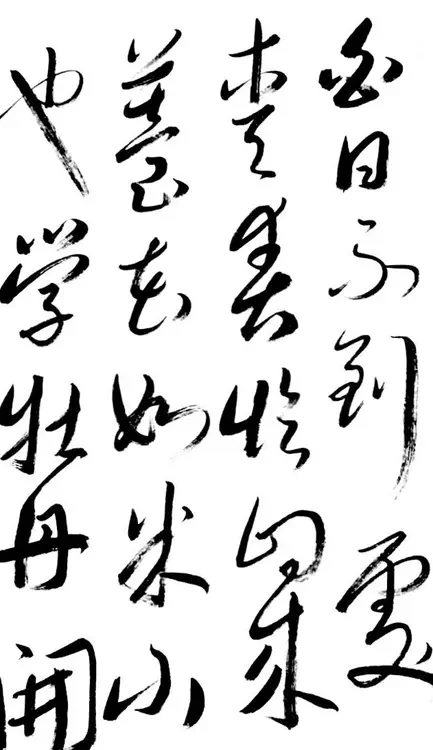 白日不到處
青春恰自來
苔花如米小
也学牡丹開